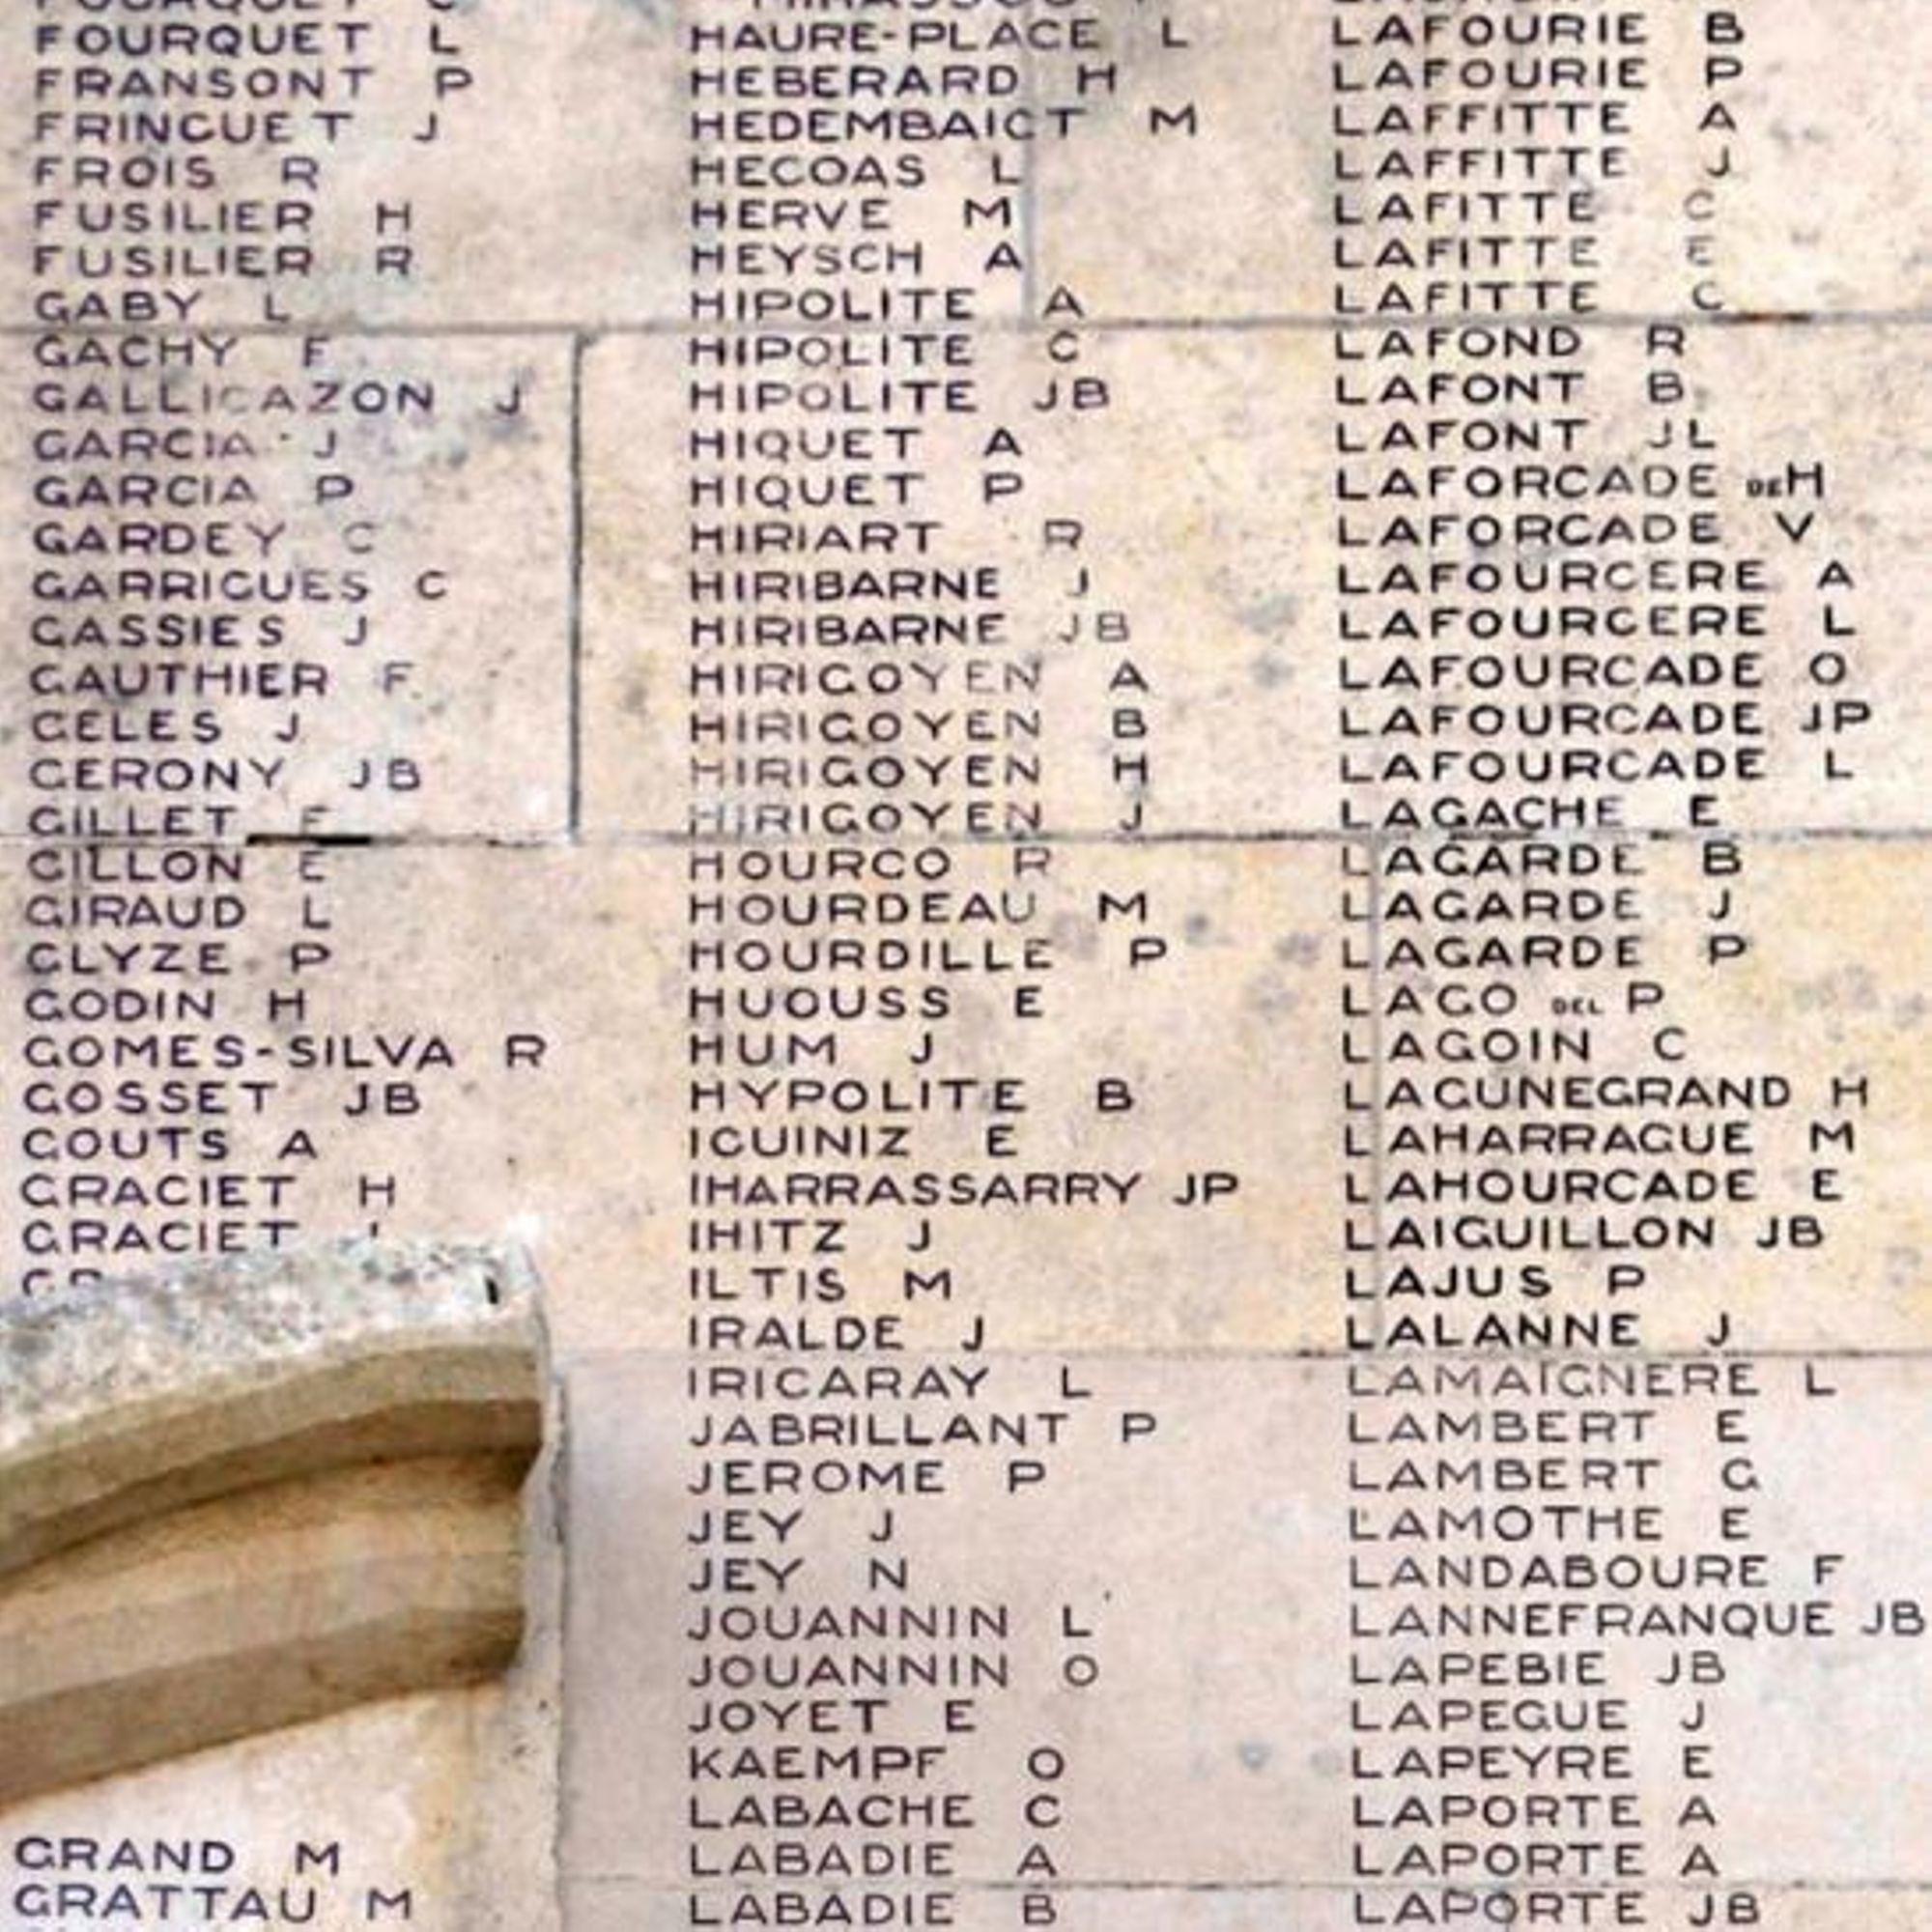 FOURQUET L
FRANSONT P
FRINGUET J
FROIS R
FUSILIER H
FUSILIER R
GABY L
GACHY F
GALLICAZON J
GARCIA J
GARCIA P
GARDEY C
GARRIGUES C
GASSIES J
GAUTHIER F
GELES J
GERONY JB
GILLET F
GILLON E
GIRAUD L
GLYZE P
GODIN H
GOMES-SILVA R
GOSSET JB
GOUTS A
GRACIET H
GRACIET
GRAND M
GRATTAU M
HAURE-PLACE L
HEBERARD H
HEDEMBAIGT M
HEGOAS L
HERVE M
HEYSCH A
HIPOLITE A
HIPOLITE C
HIPOLITE JB
HIQUET A
HIQUET P
HIRIART R
HIRIBARNE J
HIRIBARNE JB
HIRIGOYEN A
HIRIGOYEN B
HIRIGOYEN H
HIRIGOYEN J
HOURCO R
HOURDEAU M
HOURDILLE P
HUOUSS E
HUM J
HYPOLITE B
IGUINIZ E
IHARRASSARRY JP
IHITZ J
ILTIS M
IRALDE J
IRIGARAY L
JABRILLANT P
JEROME P
JEY J
JEY N
JOUANNIN L
JOUANNIN O
JOYET E
KAEMPF O
LABACHE C
LABADIE A
LABADIE B
LAFOURIE B
LAFOURIE P
LAFFITTE A
LAFFITTE J
LAFITTE C
LAFITTE E
LAFITTE G
LAFOND R
LAFONT B
LAFONT JL
LAFORCADE DE H
LAFORCADE V
LAFOURCERE A
LAFOURCERE L
LAFOURCADE O
LAFOURCADE JP
LAFOURCADE L
LAGACHE E
LAGARDE B
LAGARDE J
LAGARDE P
LAGO DEL P
LAGOIN C
LAGUNEGRAND H
LAHARRAGUE M
LAHOURCADE E
LAIGUILLON JB
LAJUS P
LALANNE J
LAMAIGNERE L
LAMBERT E
LAMBERT G
LAMOTHE E
LANDABOURE F
LANNEFRANQUE JB
LAPEBIE JB
LAPEGUE J
LAPEYRE E
LAPORTE A
LAPORTE A
LAPORTE JB